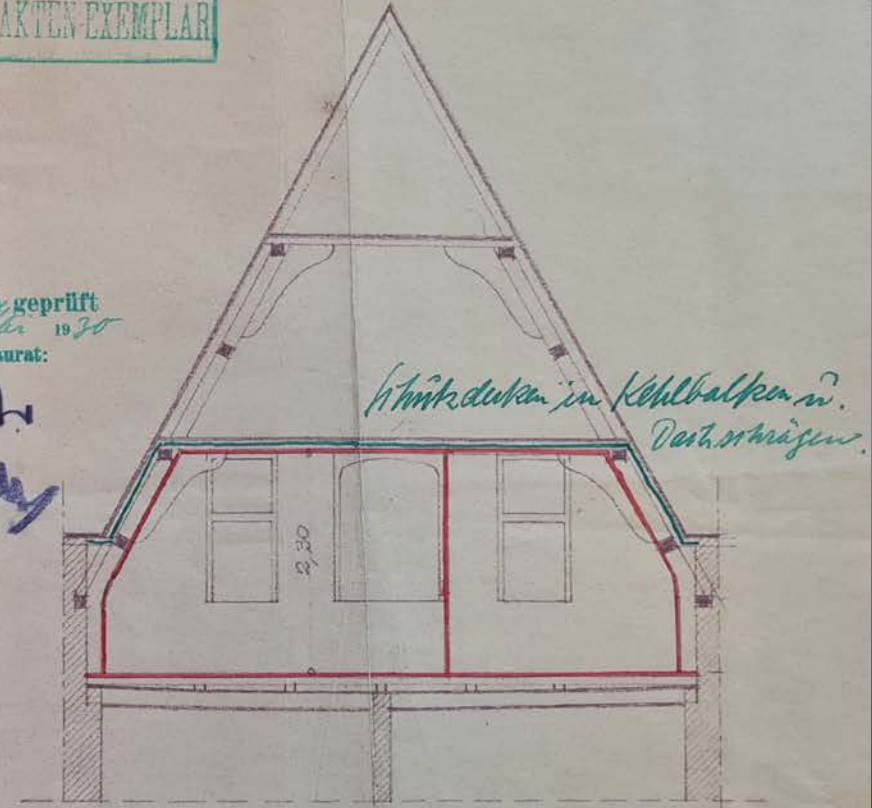 AKTEN-EXEMPLAR
geprüft
1930
urat:
in Kehlbalken u.
Dachschrägen.
2,30